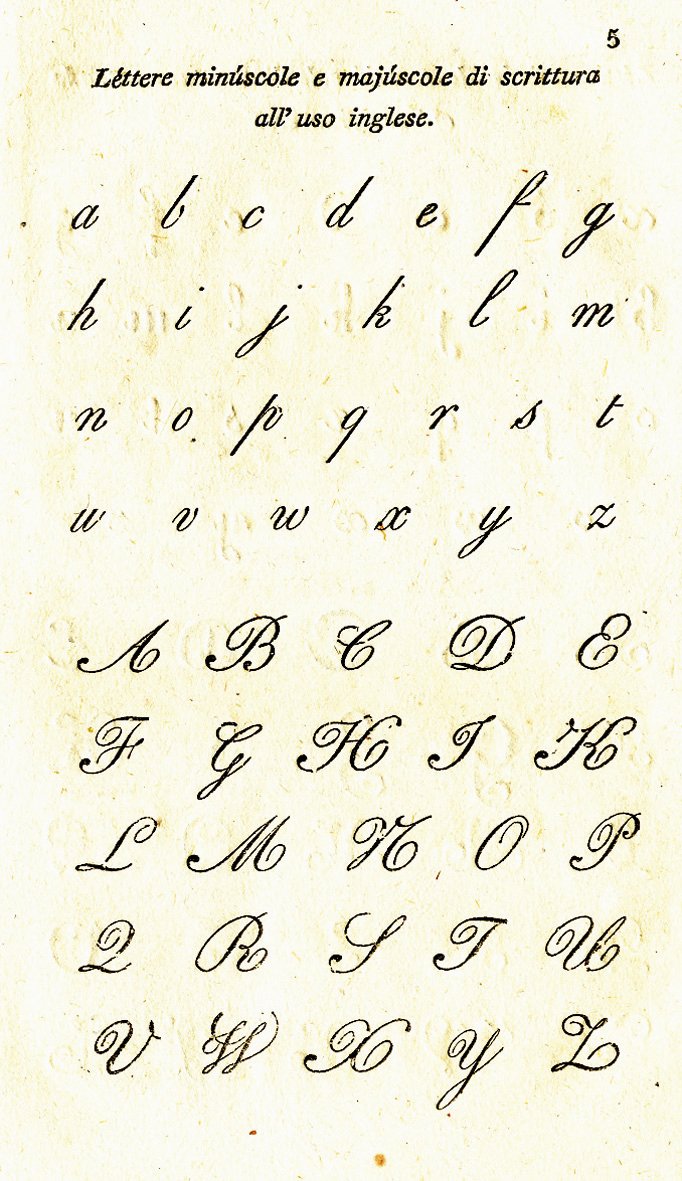 5
Léttere minúscole e majúscole di scrittura
all' uso inglese.
a b c d e f g
h i j k l m
n o p q r s t
u v w x y z
A B C D E
F G H I K
L M N O P
Q R S T U
V W X Y Z